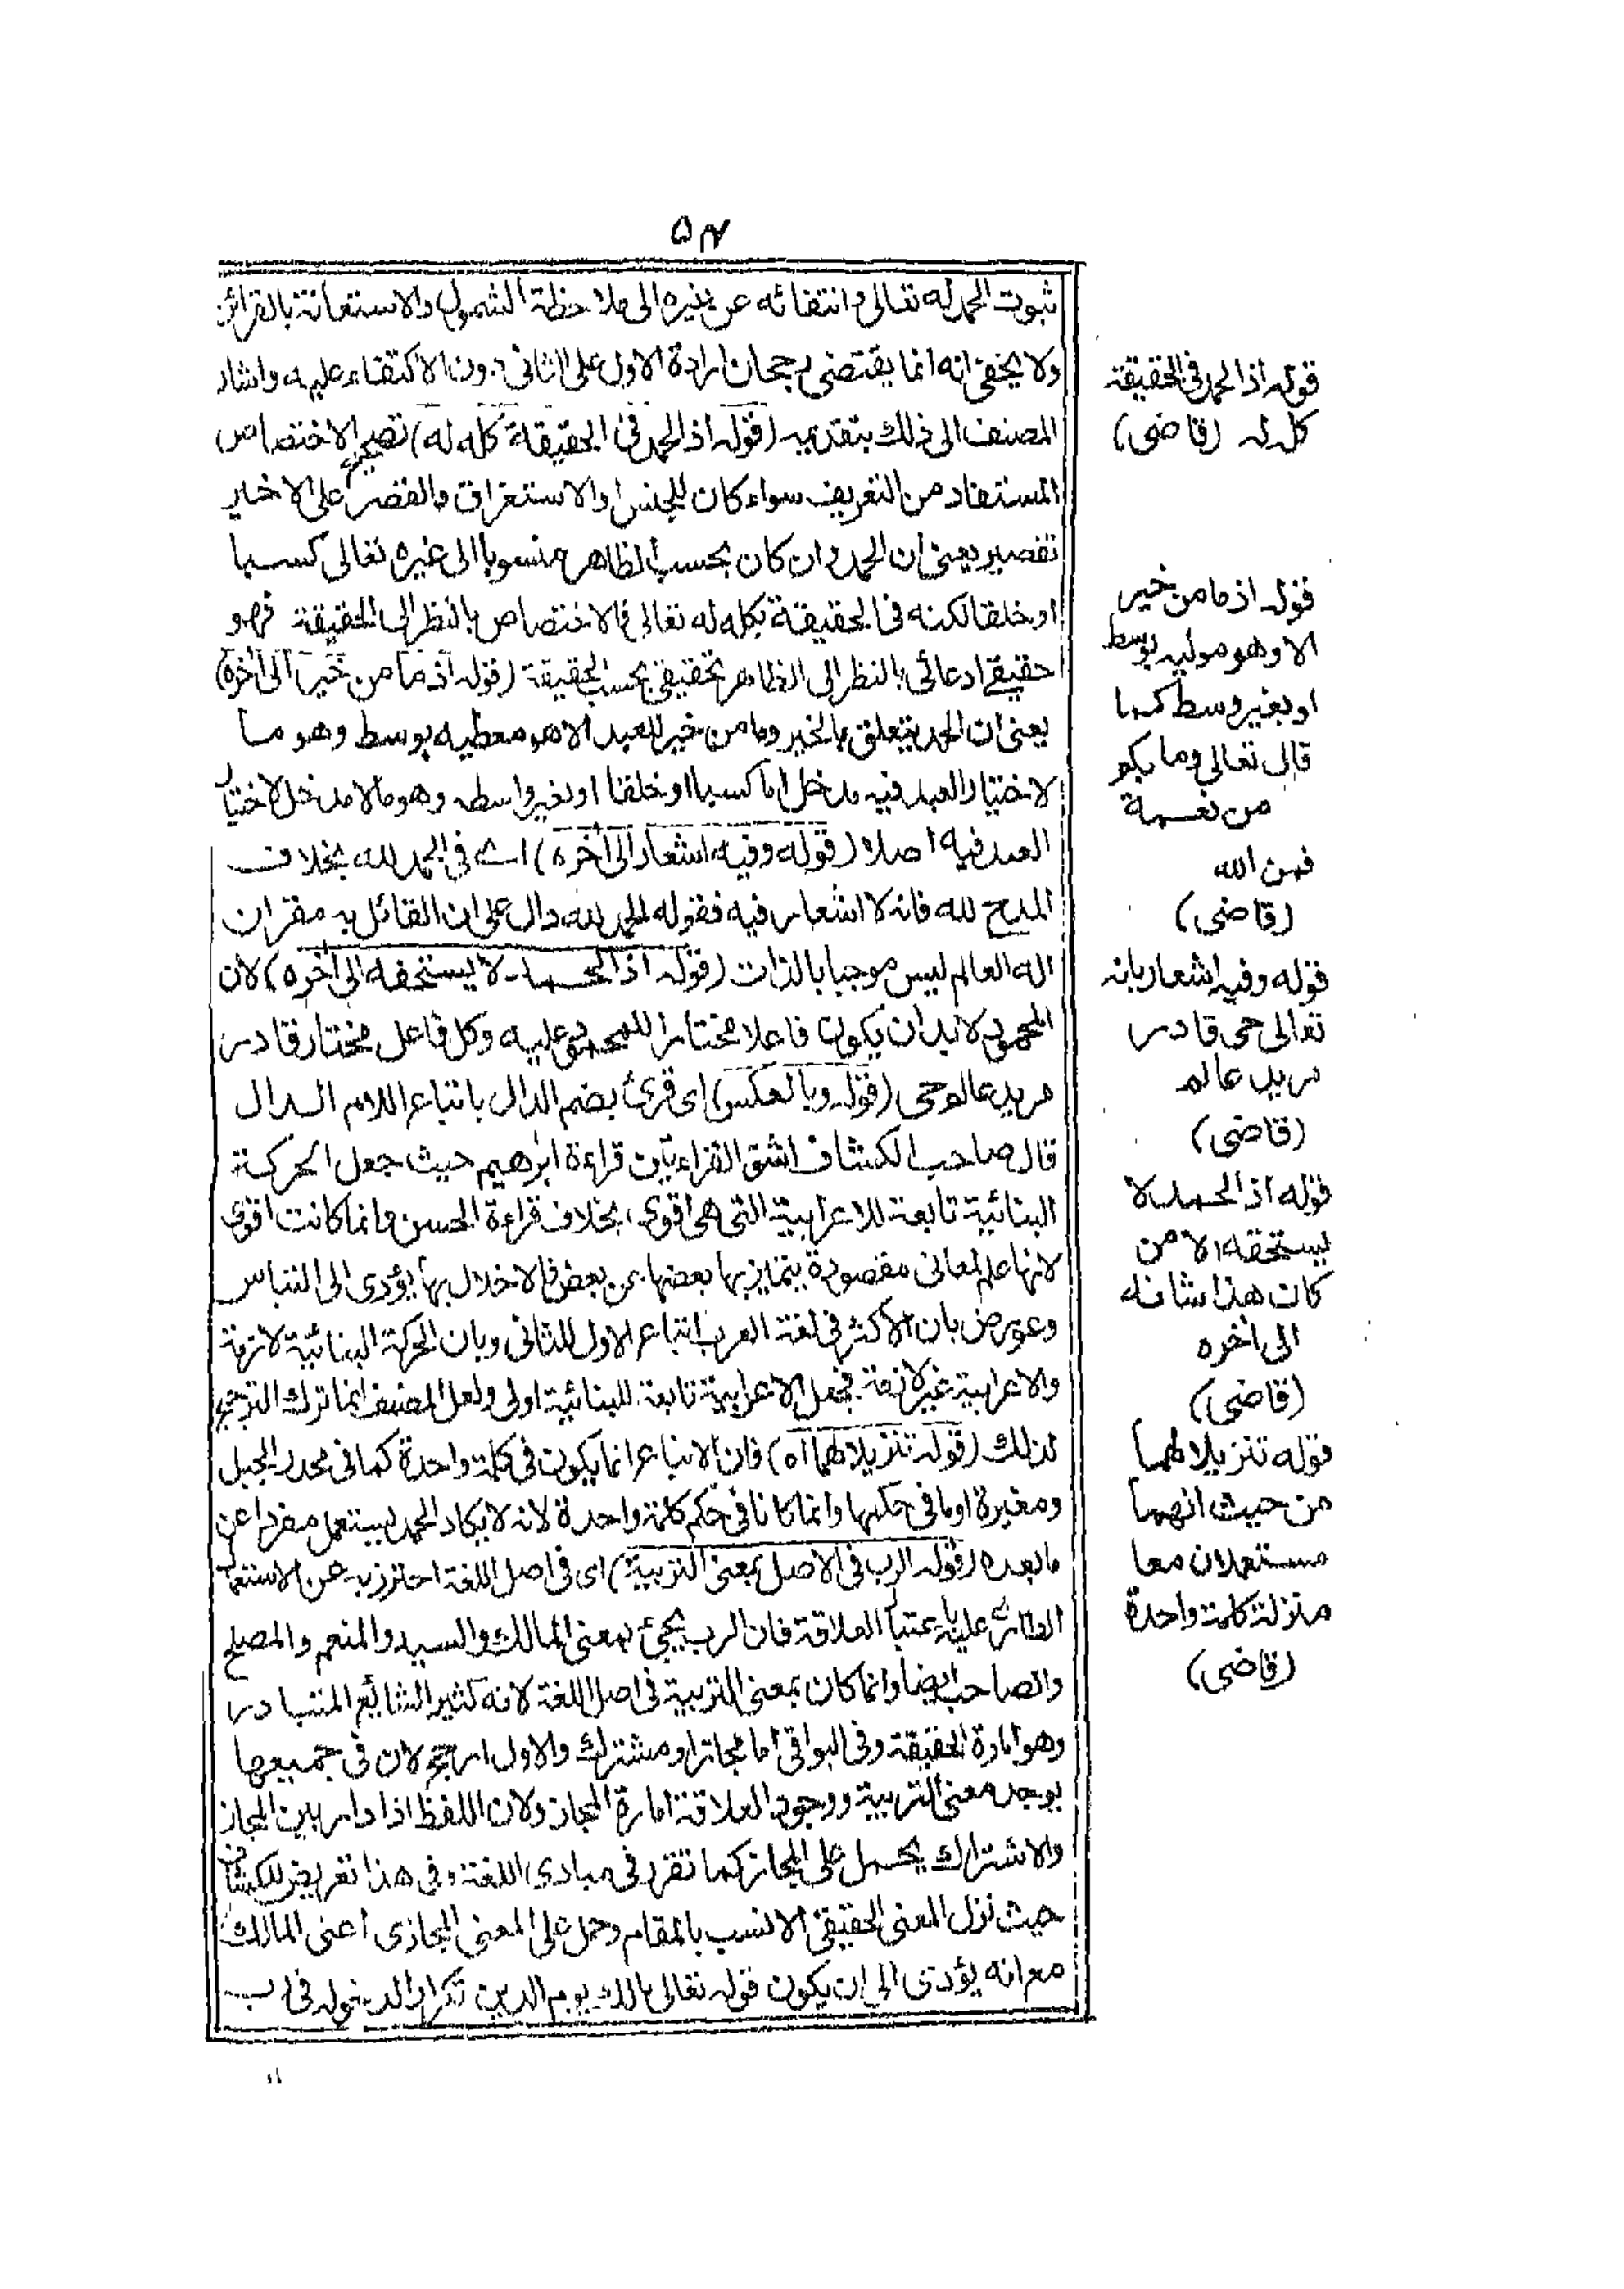 ٥٧
ثبوت الحمد له تعالى وانتفائه عن غيره الى ملاحظة الشمول والاستعانة بالقرائن
ولا يخفى انه انما يقتضى رجحان ارادة الاول على الثانى دون الاكتفاء عليه واشار
المصنف الى ذلك بتقديمه (قوله اذ الحمد فى الحقيقة كله له) تصحيح الاختصاص
المستفاد من التعريف سواء كان للجنس او الاستغراق والقصر على الاخير
تقصير يعنى ان الحمد وان كان بحسب الظاهر منسوبا الى غيره تعالى كسبا
او خلقا لكنه فى الحقيقة كله له تعالى فالاختصاص بالنظر الى الحقيقة فهو
حقيقى ادعائى بالنظر الى الظاهر تحقيقى بحسب الحقيقة (قوله اذ ما من خير الى اخره)
يعنى ان الحمد يتعلق بالخير وما من خير للعبد الا هو معطيه بوسط وهو ما
لاختيار العبد فيه مدخل اما كسبا او خلقا او بغير واسطه وهو ما لا مدخل لاختيار
العبد فيه اصلا (قوله وفيه اشعار الى اخره) اے فى الحمد لله بخلاف
المدح لله فانه لا اشعار فيه فقوله الحمد لله دال على ان القائل به مقر ان
اله العالم ليس موجبا بالذات (قوله اذ الحمد لا يستحقه الى اخره) لان
المحمود لا بد ان يكون فاعلا مختارا للمحمود عليه وكل فاعل مختار قادر
مريد عالم حى (قوله وبالعكس) اى قرئ بضم الدال باتباع اللام الدال
قال صاحب الكشاف اشق القراءتين قراءة ابرهيم حيث جعل الحركة
البنائية تابعة للاعرابية التى هى اقوى بخلاف قراءة الحسن وانما كانت اقوى
لانها علم لمعانى مقصودة يتمايز بها بعضها عن بعض فالاخلال بها يؤدى الى التباس
وعورض بان الاكثر فى لغة العرب اتباع الاول للثانى وبان الحركة البنائية لازمة
والاعرابية غير لازمة فجعل الاعرابية تابعة للبنائية اولى ولعل المصنف انما ترك الترجيح
لذلك (قوله تنزيلا لهما اه) فان الاتباع انما يكون فى كلمة واحدة كما فى محدر الجبل
ومغيرة او ما فى حكمها وانما كانا فى حكم كلمة واحدة لانه لا يكاد الحمد يستعمل مفردا عن
ما بعده (قوله الرب فى الاصل بمعنى التربية) اى فى اصل اللغة احترز به عن الاستعمال
الطارى عليه باعتبار العلاقة فان الرب يجئ بمعنى المالك والسيد والمنعم والمصلح
والصاحب ايضا وانما كان بمعنى التربية فى اصل اللغة لانه كثير الشائع المتبادر
وهو امارة الحقيقة وفى البواقى اما مجاز او مشترك والاول ارجح لان فى جميعها
يوجد معنى التربية ووجود العلاقة امارة المجاز ولان اللفظ اذا دار بين المجاز
والاشتراك يحمل على المجاز كما تقرر فى مبادى اللغة وفى هذا تعريض للكشاف
حيث نزل المعنى الحقيقى الانسب بالمقام وحمل على المعنى المجازى اعنى المالك
مع انه يؤدى الى ان يكون قوله تعالى مالك يوم الدين تكرارا لدخوله فى رب
قوله اذ الحمد فى الحقيقة
كله له (قاضى)
قوله اذ ما من خير
الا وهو موليه بوسط
او بغير وسط كما
قال تعالى وما بكم
من نعمة
فمن الله
(قاضى)
قوله وفيه اشعار بانه
تعالى حى قادر
مريد عالم
(قاضى)
قوله اذ الحمد لا
يستحقه الا من
كان هذا شانه
الى اخره
(قاضى)
قوله تنزيلا لهما
من حيث انهما
مستعملان معا
منزلة كلمة واحدة
(قاضى)